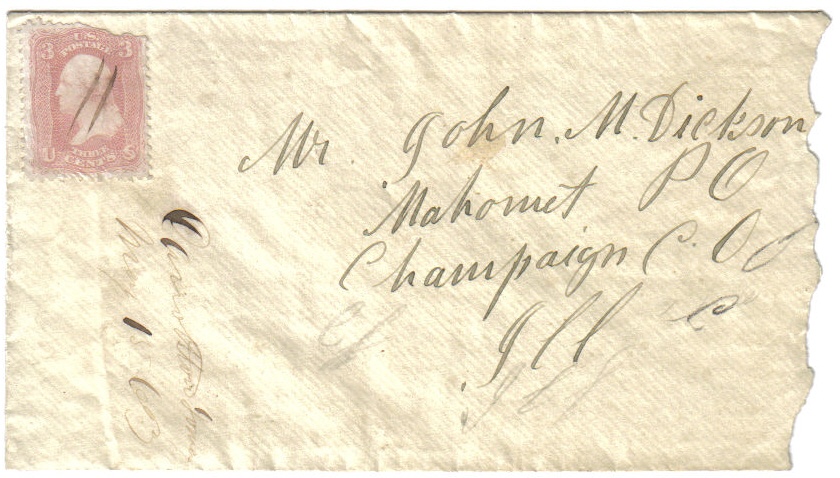 3 U.S. 3
POSTAGE
THREE
U CENTS S
Mr. John. M. Dickson
Mahomet PO
Champaign C. O
Ill
1863